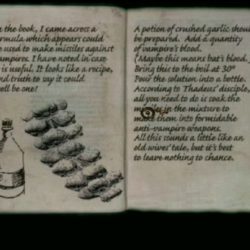 the book, I came across a
formula which appears could
used to make missiles against
vampires. I have noted in case
is useful. It looks like a recipe,
and truth to say it could
well be one!
A potion of crushed garlic should
be prepared. Add a quantity
of vampire's blood.
(Maybe this means bat's blood.)
Bring this to the boil at 30°
Pour the solution into a bottle.
According to Thadeus' disciple,
all you need to do is soak the
in the mixture to
make them into formidable
anti-vampire weapons.
All this sounds a little like an
old wives' tale, but it's best
to leave nothing to chance.